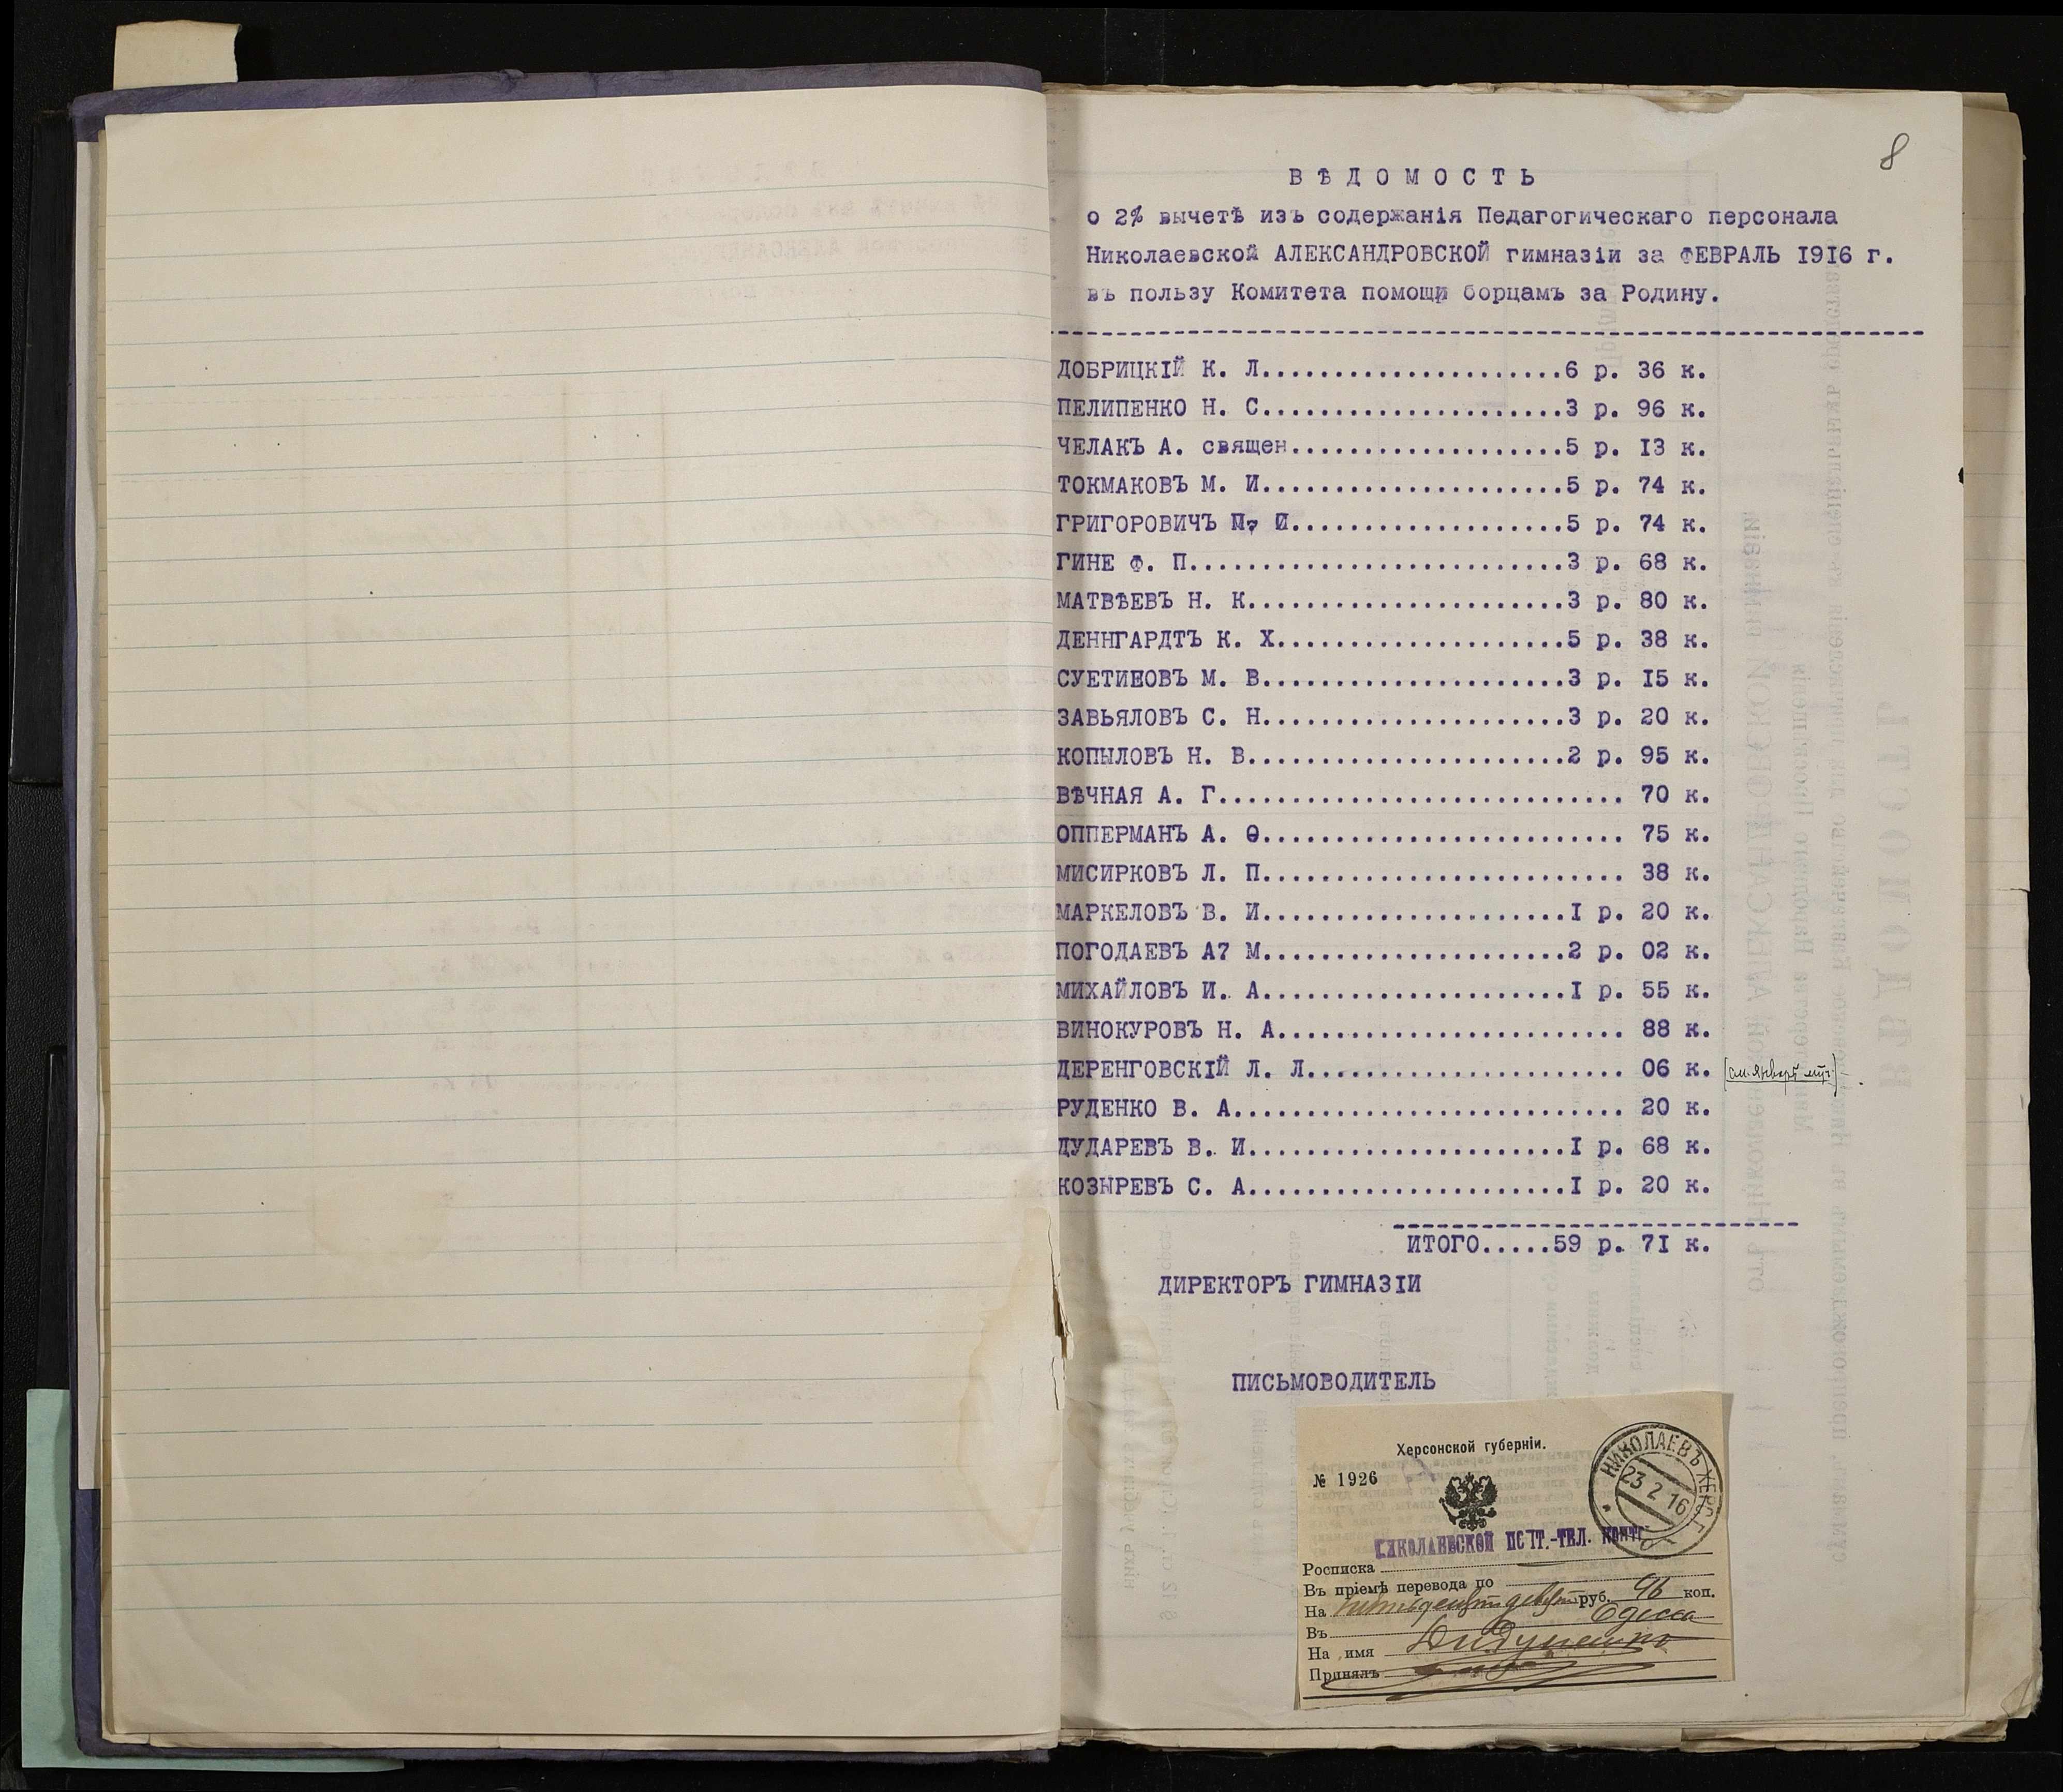 8
ВѢДОМОСТЬ
о 2% вычетѣ изъ содержанія Педагогическаго персонала
Николаевской АЛЕКСАНДРОВСКОЙ гимназіи за ФЕВРАЛЬ I9I6 г.
въ пользу Комитета помощи борцамъ за Родину.
ДОБРИЦКІЙ К. Л.....................6 р. 36 к.
ПЕЛИПЕНКО Н. С.....................3 р. 96 к.
ЧЕЛАКЪ А. священ...................5 р. I3 к.
ТОКМАКОВЪ М. И.....................5 р. 74 к.
ГРИГОРОВИЧЪ П, И...................5 р. 74 к.
ГИНЕ Ф. П..........................3 р. 68 к.
МАТВѢЕВЪ Н. К......................3 р. 80 к.
ДЕННГАРДТЪ К. Х....................5 р. 38 к.
СУЕТИНОВЪ М. В.....................3 р. I5 к.
ЗАВЬЯЛОВЪ С. Н.....................3 р. 20 к.
КОПЫЛОВЪ Н. В......................2 р. 95 к.
ВѢЧНАЯ А. Г............................ 70 к.
ОППЕРМАНЪ А. Ѳ......................... 75 к.
МИСИРКОВЪ Л. П......................... 38 к.
МАРКЕЛОВЪ В. И.....................I р. 20 к.
ПОГОДАЕВЪ А7 М.....................2 р. 02 к.
МИХАЙЛОВЪ И. А.....................I р. 55 к.
ВИНОКУРОВЪ Н. А........................ 88 к.
ДЕРЕНГОВСКІЙ Л. Л...................... 06 к.
РУДЕНКО В. А........................... 20 к.
ДУДАРЕВЪ В. И......................I р. 68 к.
КОЗЫРЕВЪ С. А......................I р. 20 к.
ИТОГО.....59 р. 7I к.
ДИРЕКТОРЪ ГИМНАЗІИ
ПИСЬМОВОДИТЕЛЬ
Херсонской губерніи.
№ 1926
НИКОЛАЕВЪ ХЕРС. Г.
23 2 16
НИКОЛАЕВСКОЙ ПОЧТ.-ТЕЛ. КОНТ.
Росписка
Въ пріемѣ перевода по
На пятьдесятъ девять руб. 96 коп.
Въ Одесса
На имя
Принялъ